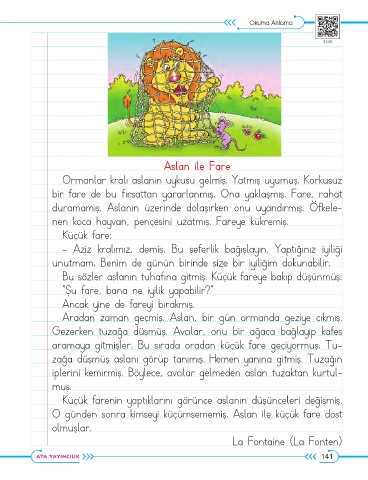 Okuma Anlama
Aslan ile Fare
Ormanlar kralı aslanın uykusu gelmiş. Yatmış uyumuş. Korkusuz
bir fare de bu fırsattan yararlanmış. Ona yaklaşmış. Fare, rahat
duramamış. Aslanın üzerinde dolaşırken onu uyandırmış. Öfkele-
nen koca hayvan, pençesini uzatmış. Fareye kükremiş.
Küçük fare:
– Aziz kralımız, demiş. Bu seferlik bağışlayın. Yaptığınız iyiliği
unutmam. Benim de günün birinde size bir iyiliğim dokunabilir.
Bu sözler aslanın tuhafına gitmiş. Küçük fareye bakıp düşünmüş:
"Şu fare, bana ne iyilik yapabilir?"
Ancak yine de fareyi bırakmış.
Aradan zaman geçmiş. Aslan, bir gün ormanda geziye çıkmış.
Gezerken tuzağa düşmüş. Avcılar, onu bir ağaca bağlayıp kafes
aramaya gitmişler. Bu sırada oradan küçük fare geçiyormuş. Tu-
zağa düşmüş aslanı görüp tanımış. Hemen yanına gitmiş. Tuzağın
iplerini kemirmiş. Böylece, avcılar gelmeden aslan tuzaktan kurtul-
muş.
Küçük farenin yaptıklarını görünce aslanın düşünceleri değişmiş.
O günden sonra kimseyi küçümsememiş. Aslan ile küçük fare dost
olmuşlar.
La Fontaine (La Fonten)
ATA YAYINCILIK
141